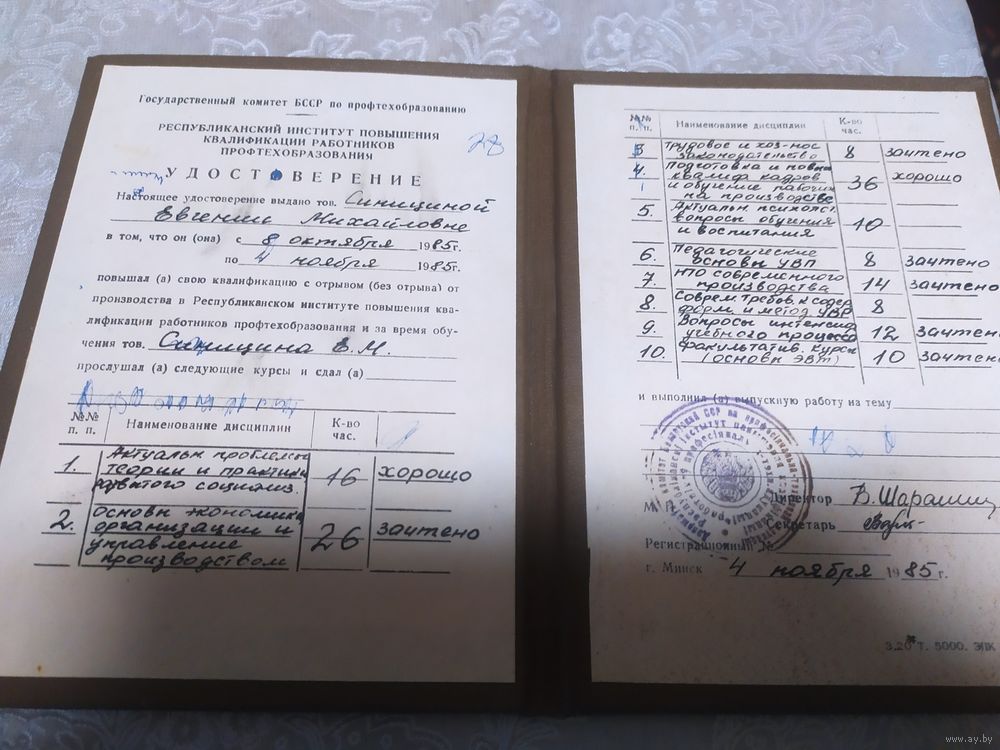 Государственный комитет БССР по профтехобразованию
РЕСПУБЛИКАНСКИЙ ИНСТИТУТ ПОВЫШЕНИЯ
КВАЛИФИКАЦИИ РАБОТНИКОВ
ПРОФТЕХОБРАЗОВАНИЯ
УДОСТОВЕРЕНИЕ
Настоящее удостоверение выдано тов. Синициной
Евгении Михайловне
в том, что он (она) с 8 октября 1985г.
по 4 ноября 1985г.
повышал (а) свою квалификацию с отрывом (без отрыва) от
производства в Республиканском институте повышения ква-
лификации работников профтехобразования и за время обу-
чения тов. Синицина Е.М.
прослушал (а) следующие курсы и сдал (а)
№№ п. п. Наименование дисциплин К-во час.
1. Актуальн проблемы
теории и практики
развитого социализ. 16 хорошо
2. Основы экономики,
организации и
управление
производством 26 зачтено
№№ п. п. Наименование дисциплин К-во час.
3 Трудовое и хоз-ное
законодательство 8 зачтено
4. Подготовка и повыш
квалиф кадров
и обучение рабочих
на производстве 36 хорошо
5. Актуальн. психолог.
вопросы обучения
и воспитания 10
6. Педагогические
основы УВП 8 зачтено
7. НТО современного
производства 14 зачтено
8. Соврем. требов. к содер
форм. и метод. УВР 8
9. Вопросы интенсив
учебного процесса 12 зачтено
10. Факультатив. курсы
(основы ЭВТ) 10 зачтено
и выполнил (а) выпускную работу на тему
М. П. Директор
Секретарь
Регистрационный №
г. Минск 4 ноября 1985г.
www.ay.by